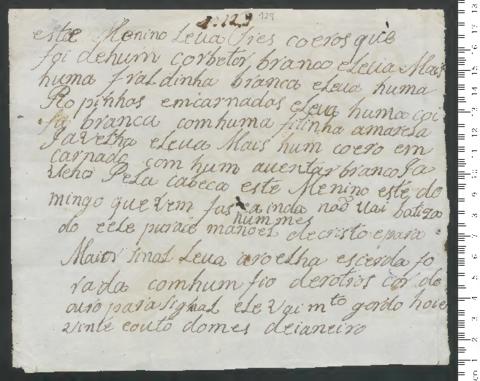 nº 129 129
este Menino Leua tres coeros que
foi dehum corbetor branco eleua Mais
huma fraldinha branca eleua huma
Ropinhos emcarnados eleua huma coi
fa branca comhuma fitinha amarela
Ja Velha eleua Mais hum coero em
carnado com hum auental branco Ja
Velho Pela cabeca este Menino este do
mingo que Vem fas ainda naõ Vai batiza
hum mes
do eele purao manoel decristo epara
Maior sinal Leua aorelha escerda fo
rada comhum fio deretros cor de
ouro parasignal ele Vai mto gordo hoie
Vinte eouto domes deianeiro